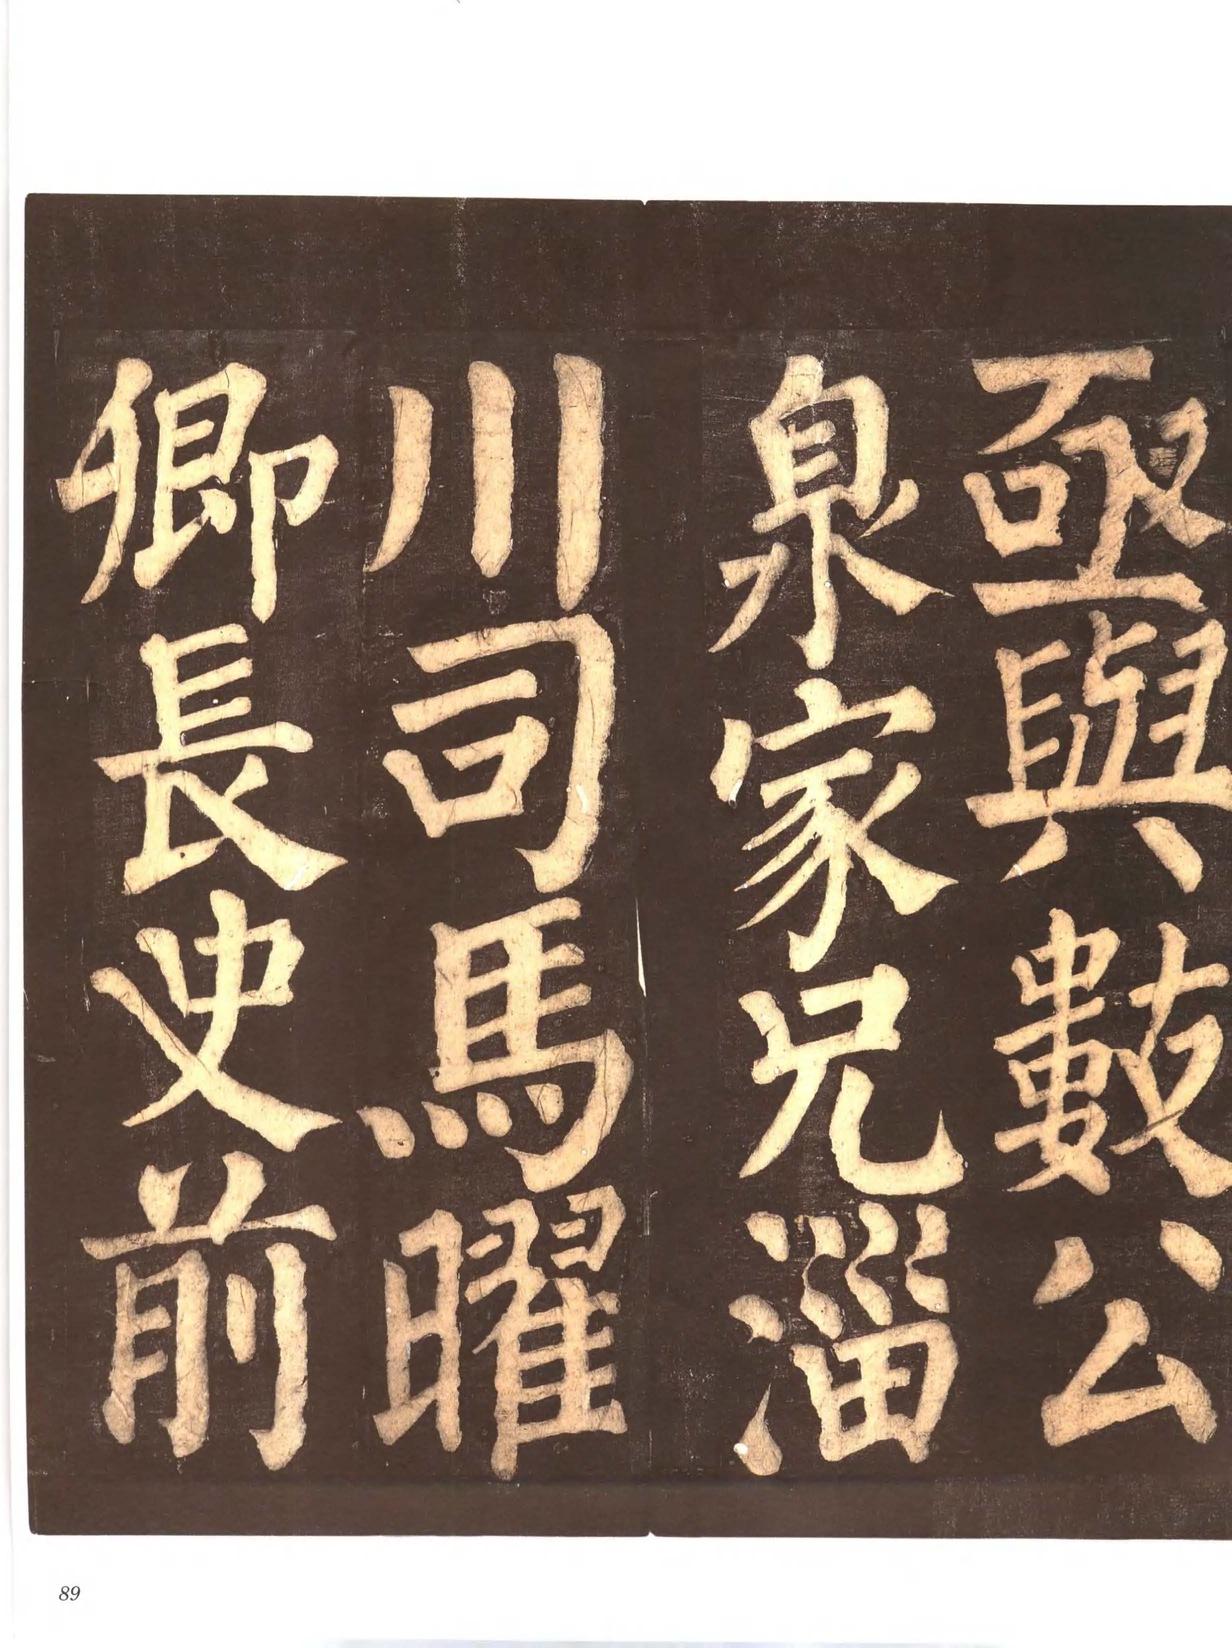 亟與數公
泉家兄淄
川司馬曜
卿長史前
89